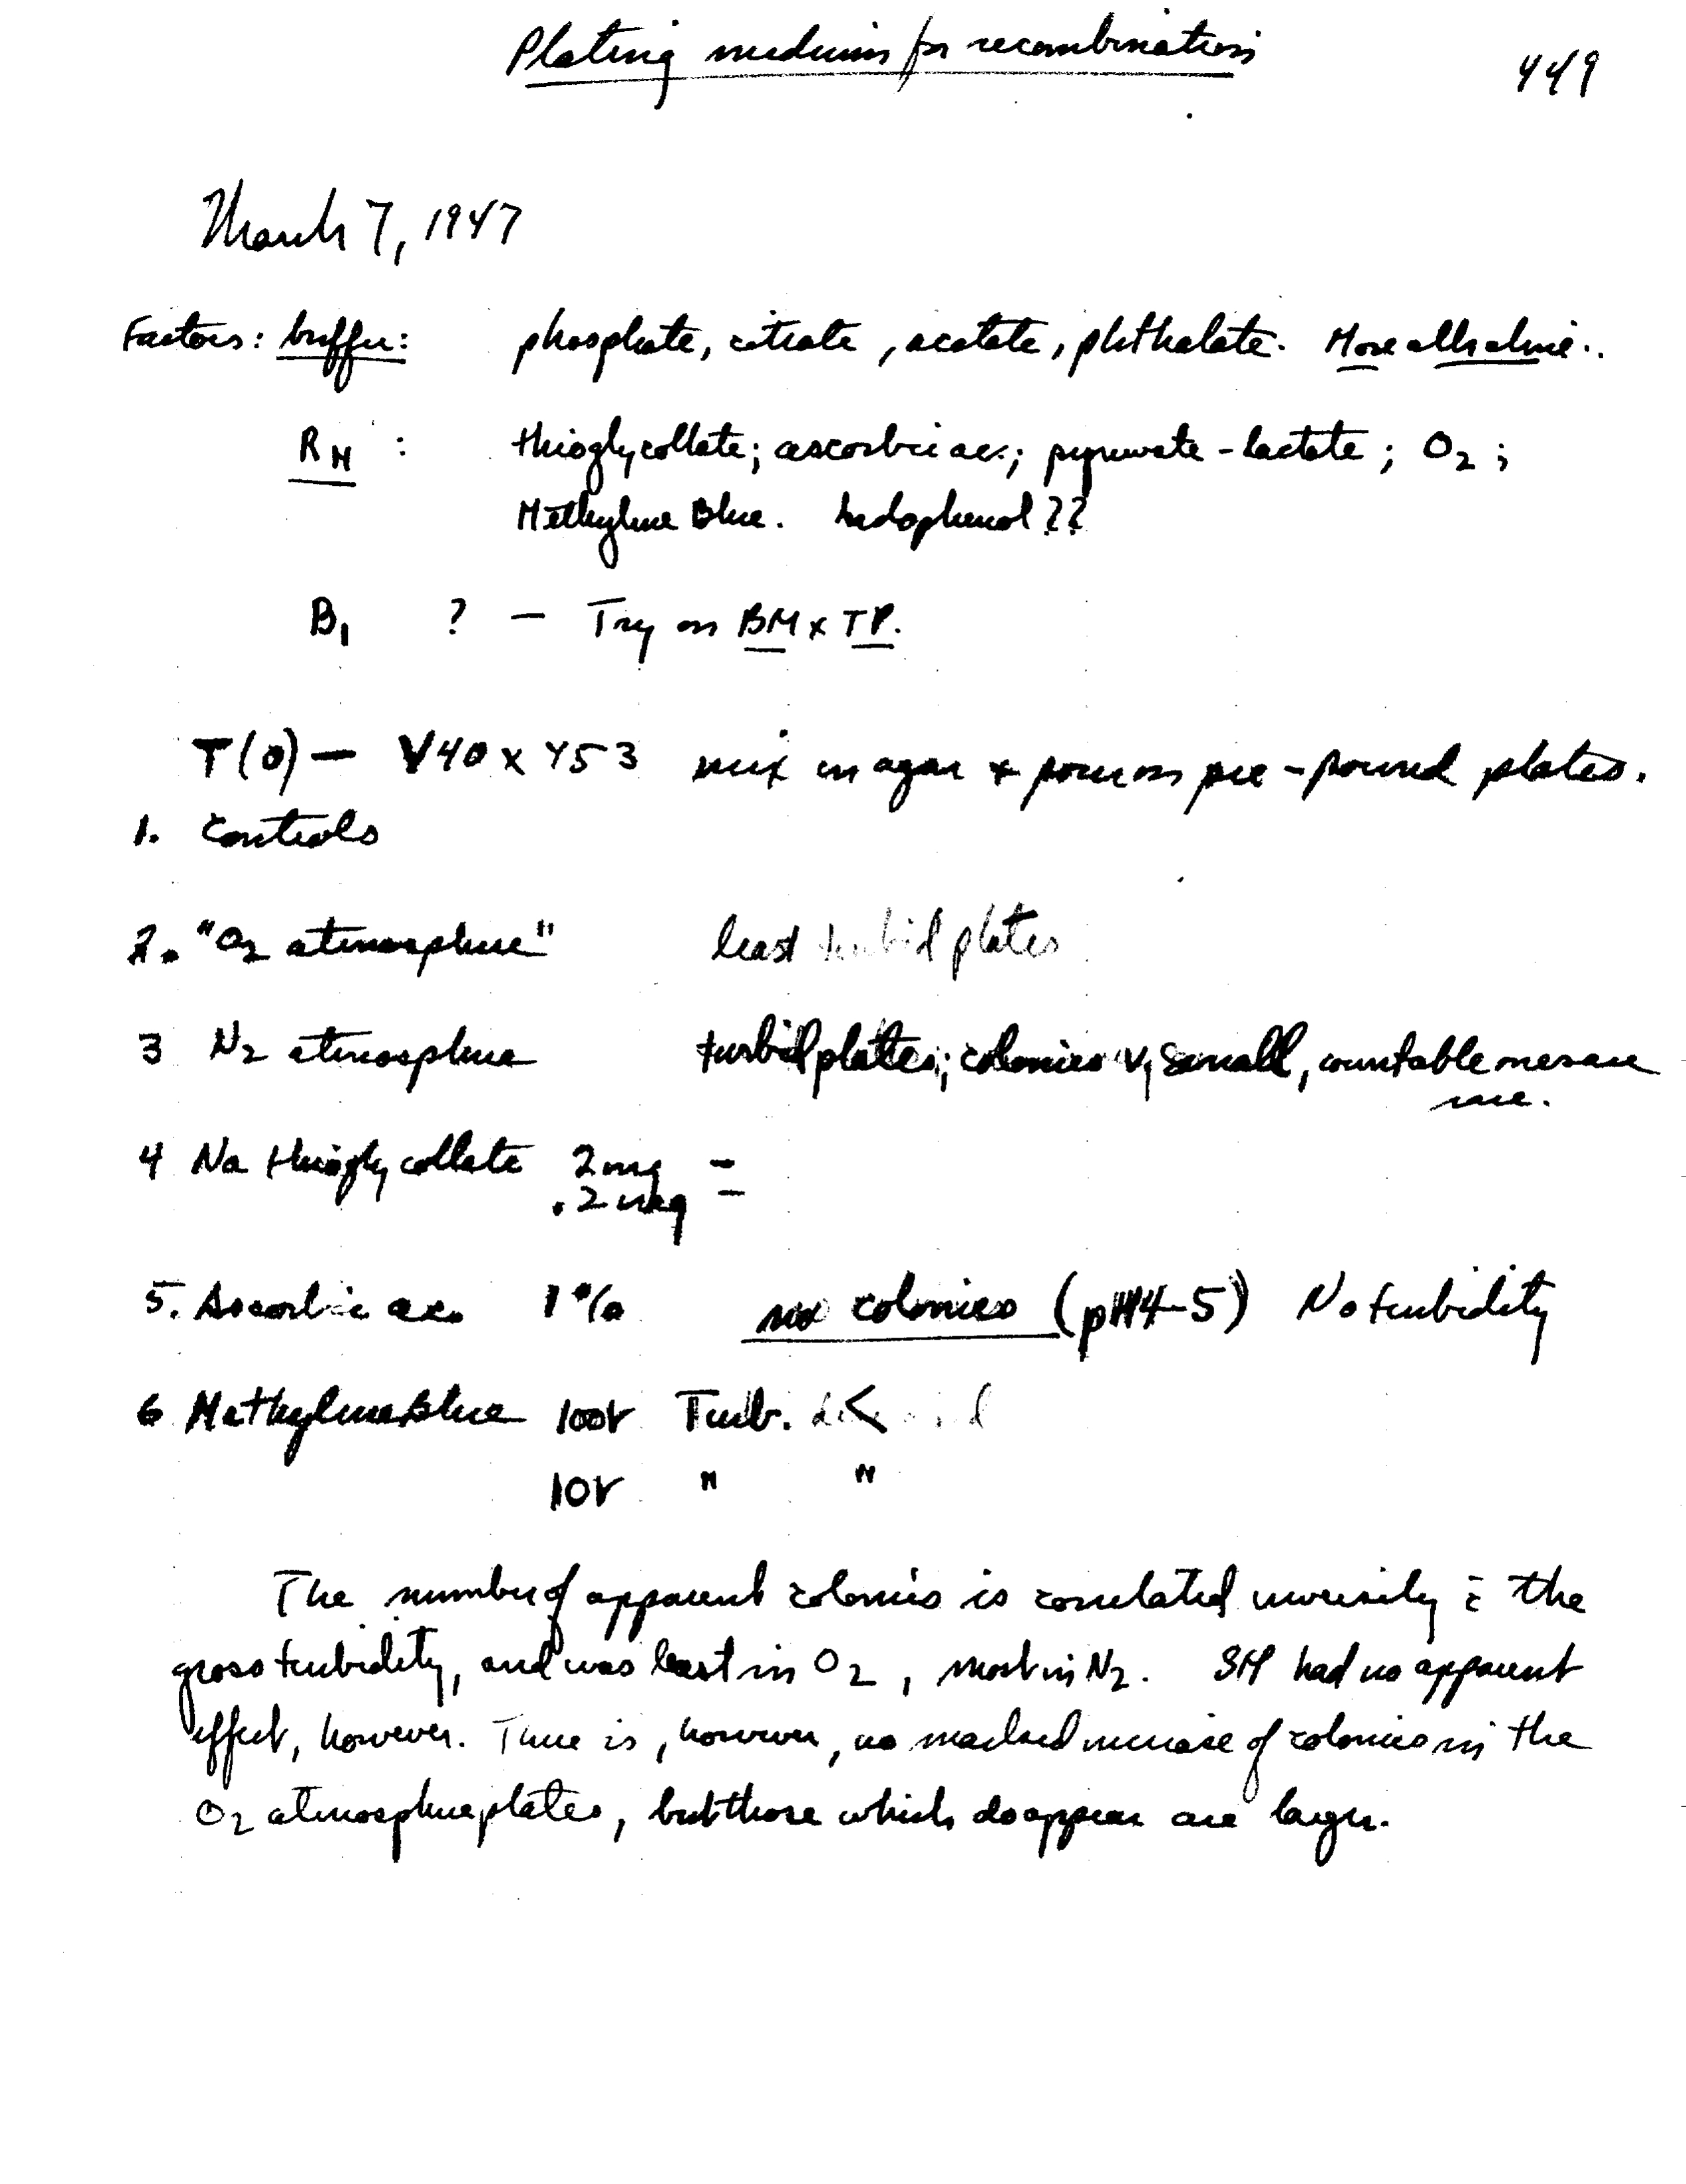 Plating medium for recombination
449
March 7, 1947
Factors: buffer: phosphate, citrate, acetate, phthalate. More alkaline..
RH : thioglycollate; ascorbic ac.; pyruvate-lactate; O2;
Methylene Blue. Indophenol??
B1 ? — Try on BM x TP.
T(0) — Y40 x Y53 mix in agar + pour on pre-poured plates.
1. Controls
2. "O2 atmosphere" least turbid plates
3 N2 atmosphere turbid plates; colonies v. small, countable
4 Na thioglycollate 2mg =
.2 mg –
5. Ascorbic ac. 1% no colonies (pH4-5) No turbidity
6 Methylene Blue 100γ Turb. <
10γ " "
The number of apparent colonies is correlated inversely c̄ the
gross turbidity, and was least in O2, most in N2. SH had no apparent
effect, however. There is, however, no marked increase of colonies in the
O2 atmosphere plates, but those which do appear are larger.